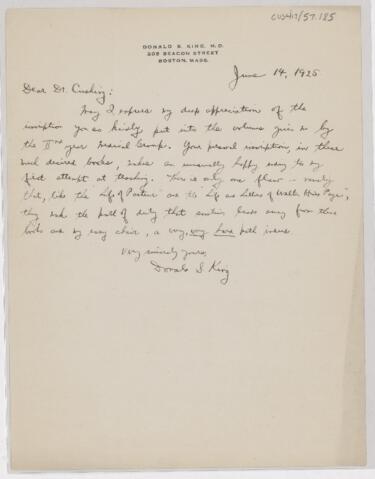 CUSHING/57.185
DONALD S. KING, M.D.
205 BEACON STREET
BOSTON, MASS.
June 14, 1925
Dear Dr. Cushing:
May I express my deep appreciation of the
inscription you so kindly put into the volumes given me by
the IInd year Medical Group. Your personal inscription, in these
much desired books, makes an unusually happy ending to my
first attempt at teaching. There is only one flaw - namely
that, like the "Life of Pasteur" and the "Life and Letters of Walter Hines Page",
they make the path of duty that leads away from these
books and my easy chair, a very, very hard path indeed.
Very sincerely yours,
Donald S. King